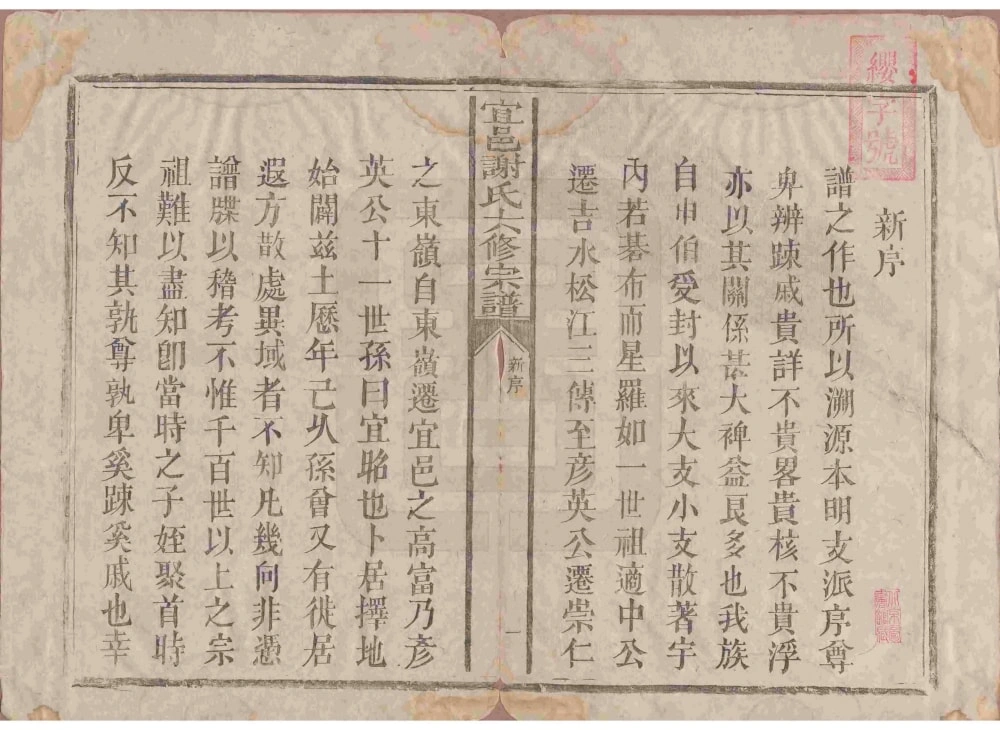 纓字號
新序
譜之作也所以溯源本明支派序尊
卑辨踈戚貴詳不貴畧貴核不貴浮
亦以其關係甚大裨益良多也我族
自申伯受封以來大支小支散著宇
內若碁布而星羅如一世祖適中公
遷吉水松江三傳至彥英公遷崇仁
宜邑謝氏六修宗譜
新序
一
之東嶺自東嶺遷宜邑之高富乃彥
英公十一世孫曰宜昭也卜居擇地
始闢兹土歷年已乆孫曾又有徙居
遐方散處異域者不知凡幾向非憑
譜牒以稽考不惟千百世以上之宗
祖難以盡知卽當時之子姪聚首時
反不知其孰尊孰卑奚踈奚戚也幸